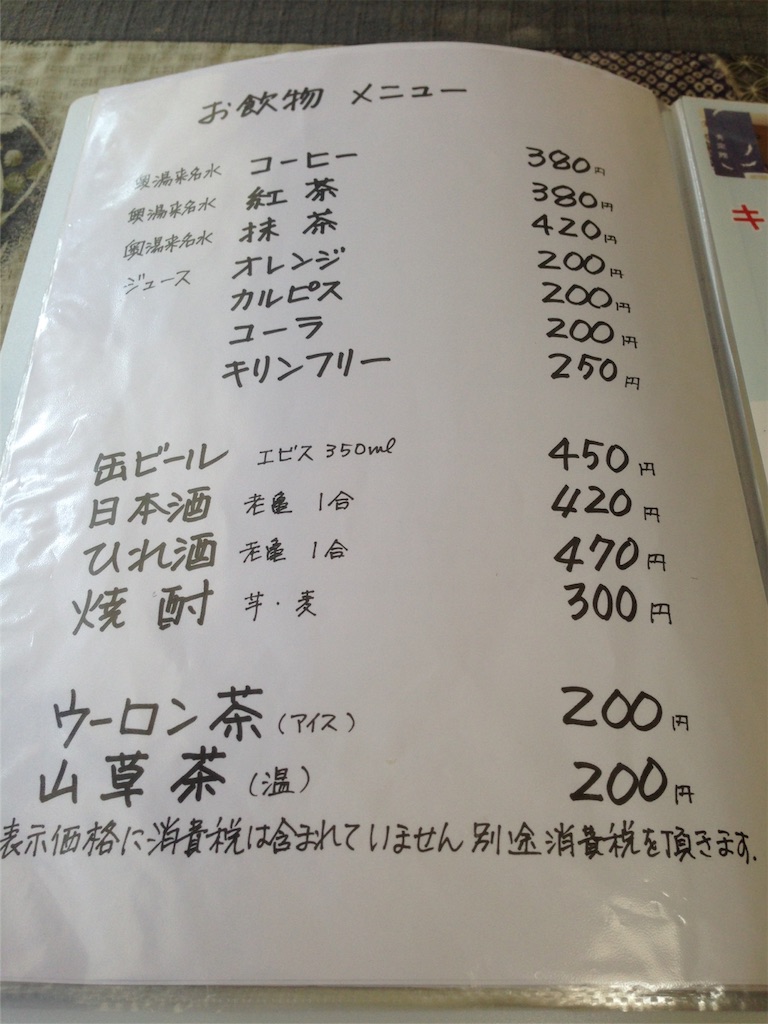 お飲物 メニュー
奥湯来名水 コーヒー 380円
奥湯来名水 紅茶 380円
奥湯来名水 抹茶 420円
ジュース オレンジ 200円
カルピス 200円
コーラ 200円
キリンフリー 250円
缶ビール エビス 350ml 450円
日本酒 老亀 1合 420円
ひれ酒 老亀 1合 470円
焼酎 芋・麦 300円
ウーロン茶(アイス) 200円
山草茶(温) 200円
表示価格に消費税は含まれていません 別途消費税を頂きます.
キ